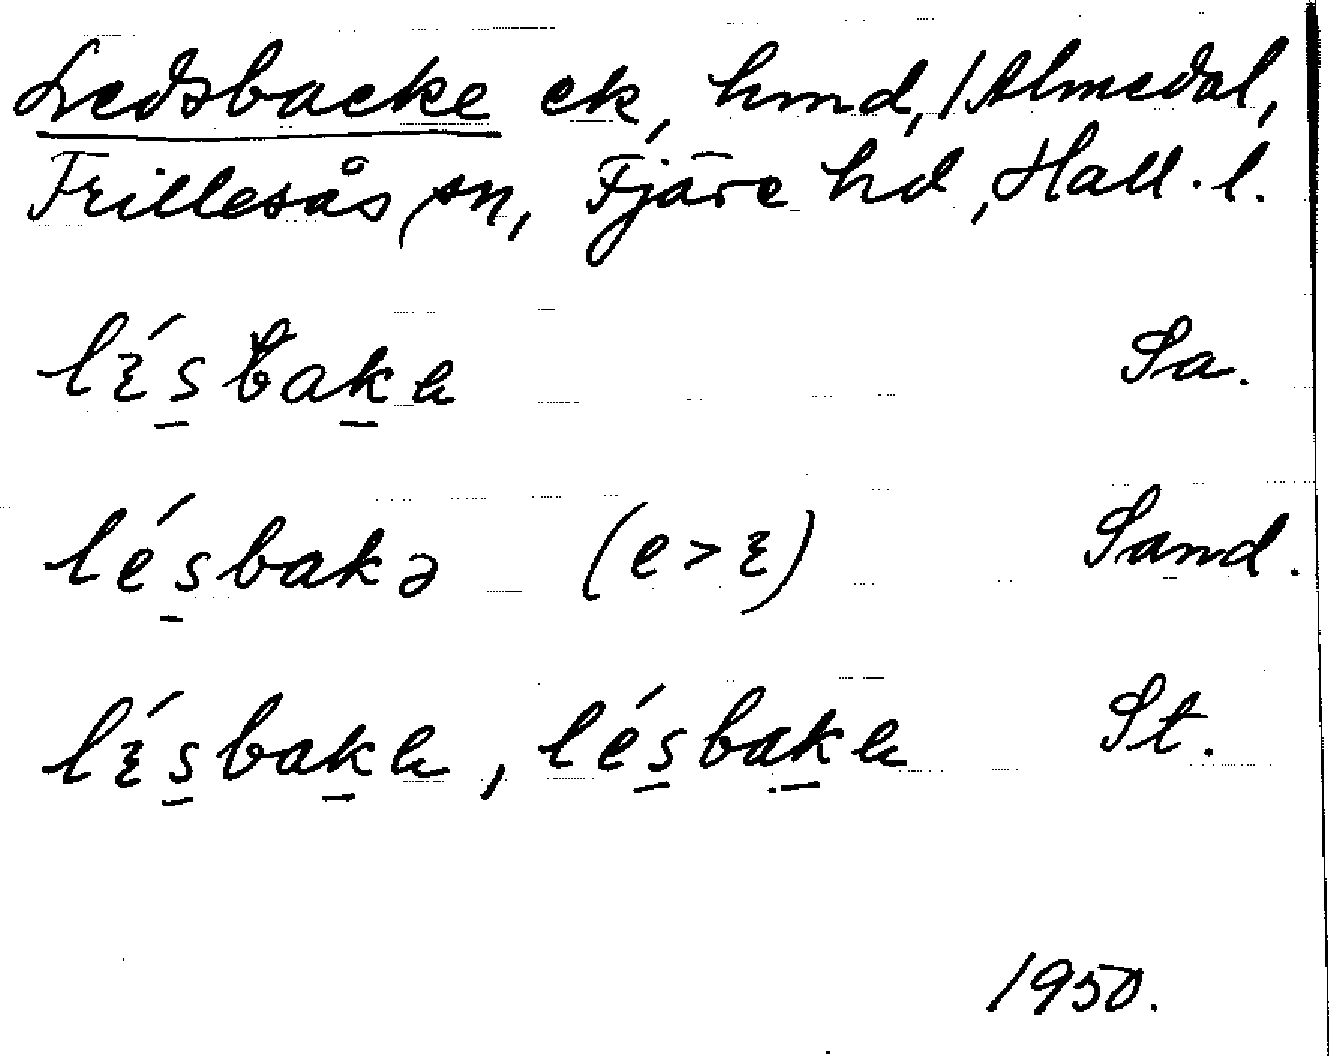 Ledsbacke ek, hmd, /Almedal,
Frillesås sn, Fjäre hd, Hall. l.
lɛ́sbakɐ Sa.
lésbakə (e > ɛ) Sand.
lɛ́sbakɐ, lésbakɐ St.
1950.